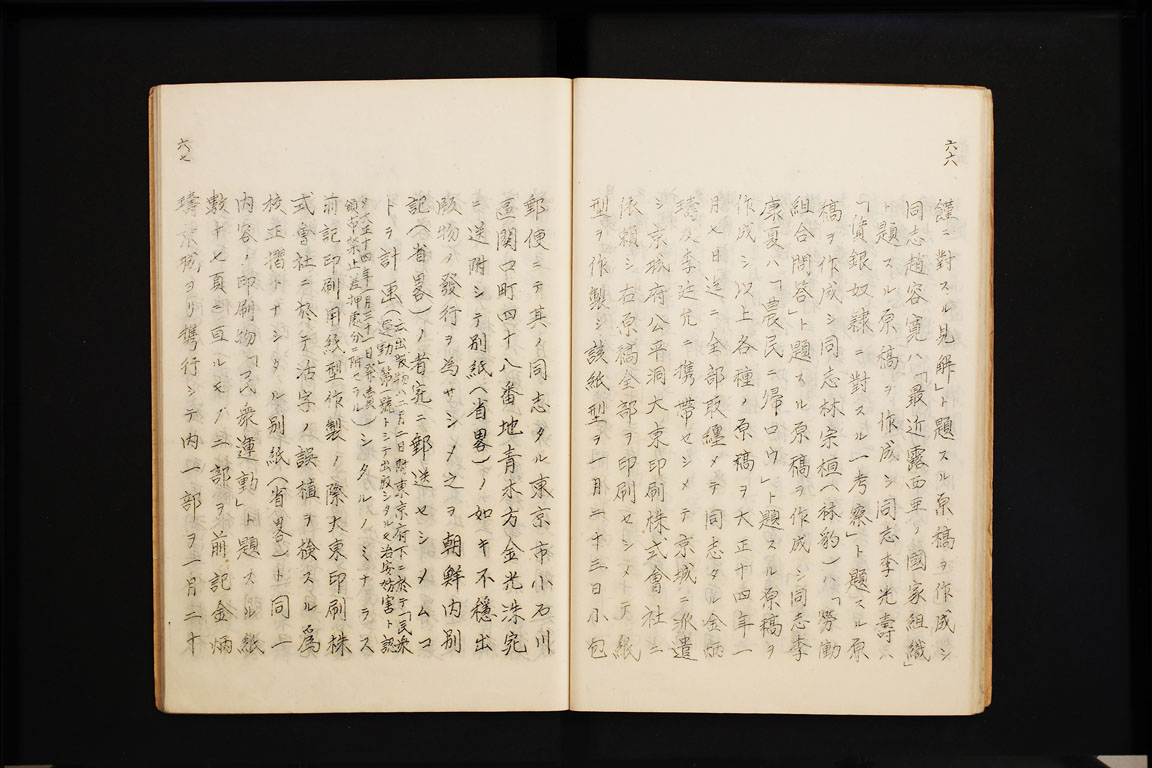 六六
鐘ニ對スル見解」ト題スル原稿ヲ作成シ
同志趙容寛ハ「最近露西亜ノ國家組織」
ト題スル原稿ヲ作成シ同志李光壽ハ
「賃銀奴隷ニ對スル一考察」ト題スル原
稿ヲ作成シ同志林宗桓(林豹)ハ「勞働
組合問答」ト題スル原稿ヲ作成シ同志李
康夏ハ「農民ニ帰ロウ」ト題スル原稿ヲ
作成シ以上各種ノ原稿ヲ大正十四年一
月七日迄ニ全部取纏メテ同志タル金炳
璹及李廷允ニ携帶セシメテ京城ニ派遣
シ京城府公平洞大東印刷株式會社ニ
依頼シ右原稿全部ヲ印刷セシメテ紙
型ヲ作製シ該紙型ヲ一月二十三日小包
郵便ニテ其ノ同志タル東京市小石川
區関口町四十八番地青木方金光洙宛
ニ送附シテ別紙(省畧)ノ如キ不穩出
版物ノ發行ヲ為サシメ之ヲ朝鮮内別
記(省畧)ノ者宛ニ郵送セシメムコ
トヲ計画(云出版物ハ二月二日附東京府下ニ於テ「民衆
運動」第一號トシテ出版シタルモ治安妨害ト認
メ大正十四年一月三十一日発賣
頒布禁止差押處分ニ附セラル)シタルノミナラス
前記印刷用紙型作製ノ際大東印刷株
式會社ニ於テ活字ノ誤植ヲ検スル為
校正摺トナシタル別紙(省畧)ト同一
内容ノ印刷物「民衆運動」ト題スル紙
數十七頁ニ亘ルモノ二部ヲ前記金炳
璹京城ヨリ携行シテ内一部ヲ一月二十
六七